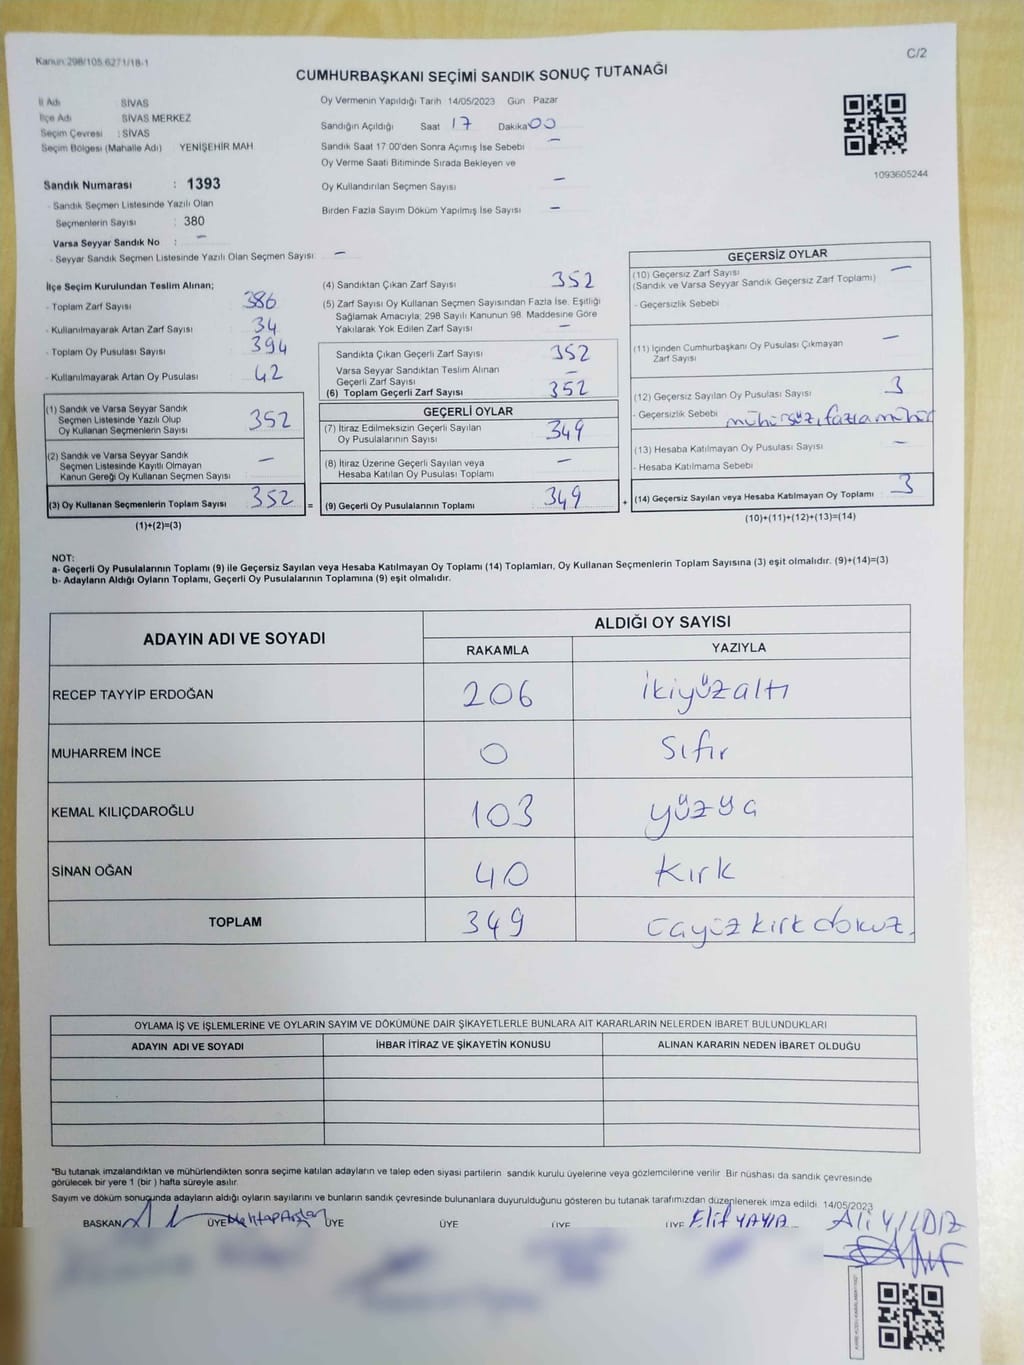 Kanun 298/105.6271/18-1
C/2
CUMHURBAŞKANI SEÇİMİ SANDIK SONUÇ TUTANAĞI
İl Adı SİVAS
İlçe Adı SİVAS MERKEZ
Seçim Çevresi : SİVAS
Seçim Bölgesi (Mahalle Adı) YENİŞEHİR MAH
Sandık Numarası : 1393
- Sandık Seçmen Listesinde Yazılı Olan
Seçmenlerin Sayısı : 380
Varsa Seyyar Sandık No : –
- Seyyar Sandık Seçmen Listesinde Yazılı Olan Seçmen Sayısı: –
Oy Vermenin Yapıldığı Tarih 14/05/2023 Gün Pazar
Sandığın Açıldığı Saat 17 Dakika 00
Sandık Saat 17:00'den Sonra Açılmış İse Sebebi –
Oy Verme Saati Bitiminde Sırada Bekleyen ve
Oy Kullandırılan Seçmen Sayısı –
Birden Fazla Sayım Döküm Yapılmış İse Sayısı –
1093605244
İlçe Seçim Kurulundan Teslim Alınan;
- Toplam Zarf Sayısı 386
- Kullanılmayarak Artan Zarf Sayısı 34
- Toplam Oy Pusulası Sayısı 394
- Kullanılmayarak Artan Oy Pusulası 42
(1) Sandık ve Varsa Seyyar Sandık
Seçmen Listesinde Yazılı Olup
Oy Kullanan Seçmenlerin Sayısı 352
(2) Sandık ve Varsa Seyyar Sandık
Seçmen Listesinde Kayıtlı Olmayan
Kanun Gereği Oy Kullanan Seçmen Sayısı –
(3) Oy Kullanan Seçmenlerin Toplam Sayısı 352 =
(1)+(2)=(3)
(4) Sandıktan Çıkan Zarf Sayısı 352
(5) Zarf Sayısı Oy Kullanan Seçmen Sayısından Fazla İse, Eşitliği
Sağlamak Amacıyla; 298 Sayılı Kanunun 98. Maddesine Göre
Yakılarak Yok Edilen Zarf Sayısı –
Sandıkta Çıkan Geçerli Zarf Sayısı 352
Varsa Seyyar Sandıktan Teslim Alınan
Geçerli Zarf Sayısı –
(6) Toplam Geçerli Zarf Sayısı 352
GEÇERLİ OYLAR
(7) İtiraz Edilmeksizin Geçerli Sayılan
Oy Pusulalarının Sayısı 349
(8) İtiraz Üzerine Geçerli Sayılan veya
Hesaba Katılan Oy Pusulası Toplamı –
(9) Geçerli Oy Pusulalarının Toplamı 349 +
GEÇERSİZ OYLAR
(10) Geçersiz Zarf Sayısı –
(Sandık ve Varsa Seyyar Sandık Geçersiz Zarf Toplamı)
- Geçersizlik Sebebi
(11) İçinden Cumhurbaşkanı Oy Pusulası Çıkmayan
Zarf Sayısı –
(12) Geçersiz Sayılan Oy Pusulası Sayısı 3
- Geçersizlik Sebebi mühürsüz, fazla mühür
(13) Hesaba Katılmayan Oy Pusulası Sayısı –
- Hesaba Katılmama Sebebi
(14) Geçersiz Sayılan veya Hesaba Katılmayan Oy Toplamı 3
(10)+(11)+(12)+(13)=(14)
NOT:
a- Geçerli Oy Pusulalarının Toplamı (9) ile Geçersiz Sayılan veya Hesaba Katılmayan Oy Toplamı (14) Toplamları, Oy Kullanan Seçmenlerin Toplam Sayısına (3) eşit olmalıdır. (9)+(14)=(3)
b- Adayların Aldığı Oyların Toplamı, Geçerli Oy Pusulalarının Toplamına (9) eşit olmalıdır.
ADAYIN ADI VE SOYADI ALDIĞI OY SAYISI
RAKAMLA YAZIYLA
RECEP TAYYİP ERDOĞAN 206 ikiyüzaltı
MUHARREM İNCE 0 Sıfır
KEMAL KILIÇDAROĞLU 103 yüzüç
SİNAN OĞAN 40 Kırk
TOPLAM 349 üçyüz kırk dokuz
OYLAMA İŞ VE İŞLEMLERİNE VE OYLARIN SAYIM VE DÖKÜMÜNE DAİR ŞİKAYETLERLE BUNLARA AİT KARARLARIN NELERDEN İBARET BULUNDUKLARI
ADAYIN ADI VE SOYADI İHBAR İTİRAZ VE ŞİKAYETİN KONUSU ALINAN KARARIN NEDEN İBARET OLDUĞU
*Bu tutanak imzalandıktan ve mühürlendikten sonra seçime katılan adayların ve talep eden siyasi partilerin sandık kurulu üyelerine veya gözlemcilerine verilir. Bir nüshası da sandık çevresinde
görülecek bir yere 1 (bir) hafta süreyle asılır.
Sayım ve döküm sonuçunda adayların aldığı oyların sayılarını ve bunların sandık çevresinde bulunanlara duyurulduğunu gösteren bu tutanak tarafımızdan düzenlenerek imza edildi. 14/05/2023
BAŞKAN ÜYE ÜYE ÜYE ÜYE ÜYE Elif YAYLA Ali YILDIZ